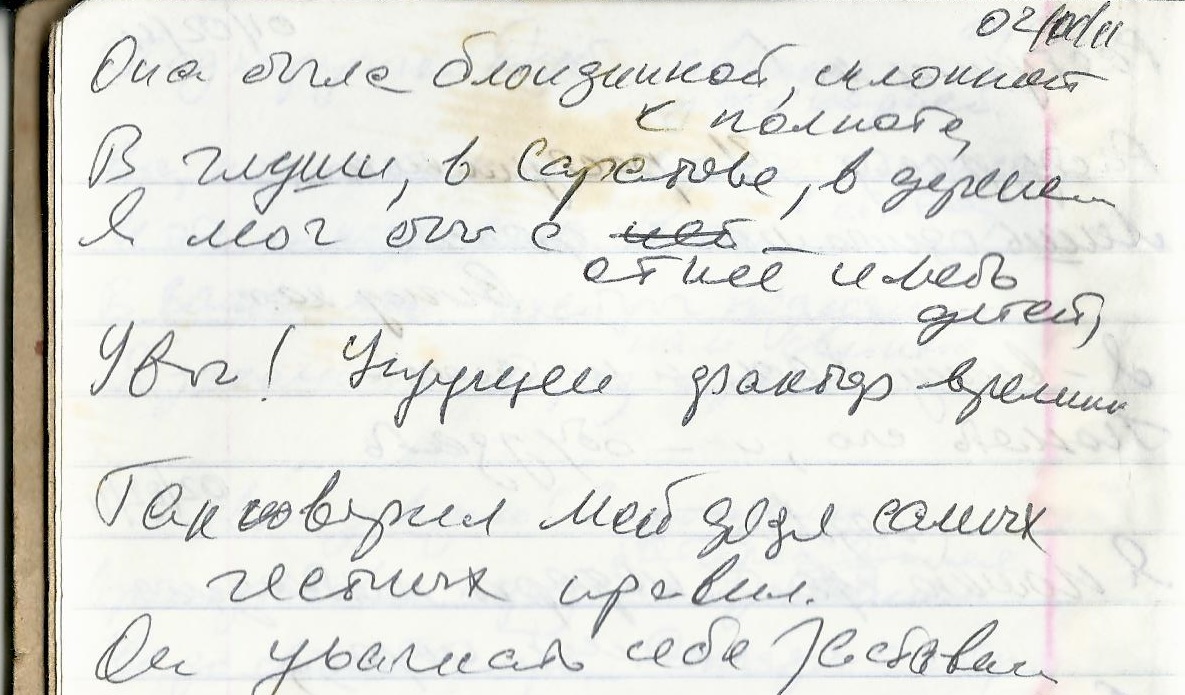 Она была блондинкой, склонной
к полноте,
В глуши, в Саратове, в деревне
Я мог бы с ней
от неё иметь
детей,
Увы! Упущен фактор времени
Так говорил мой дядя самых
честных правил.
Он уважать себя заставил